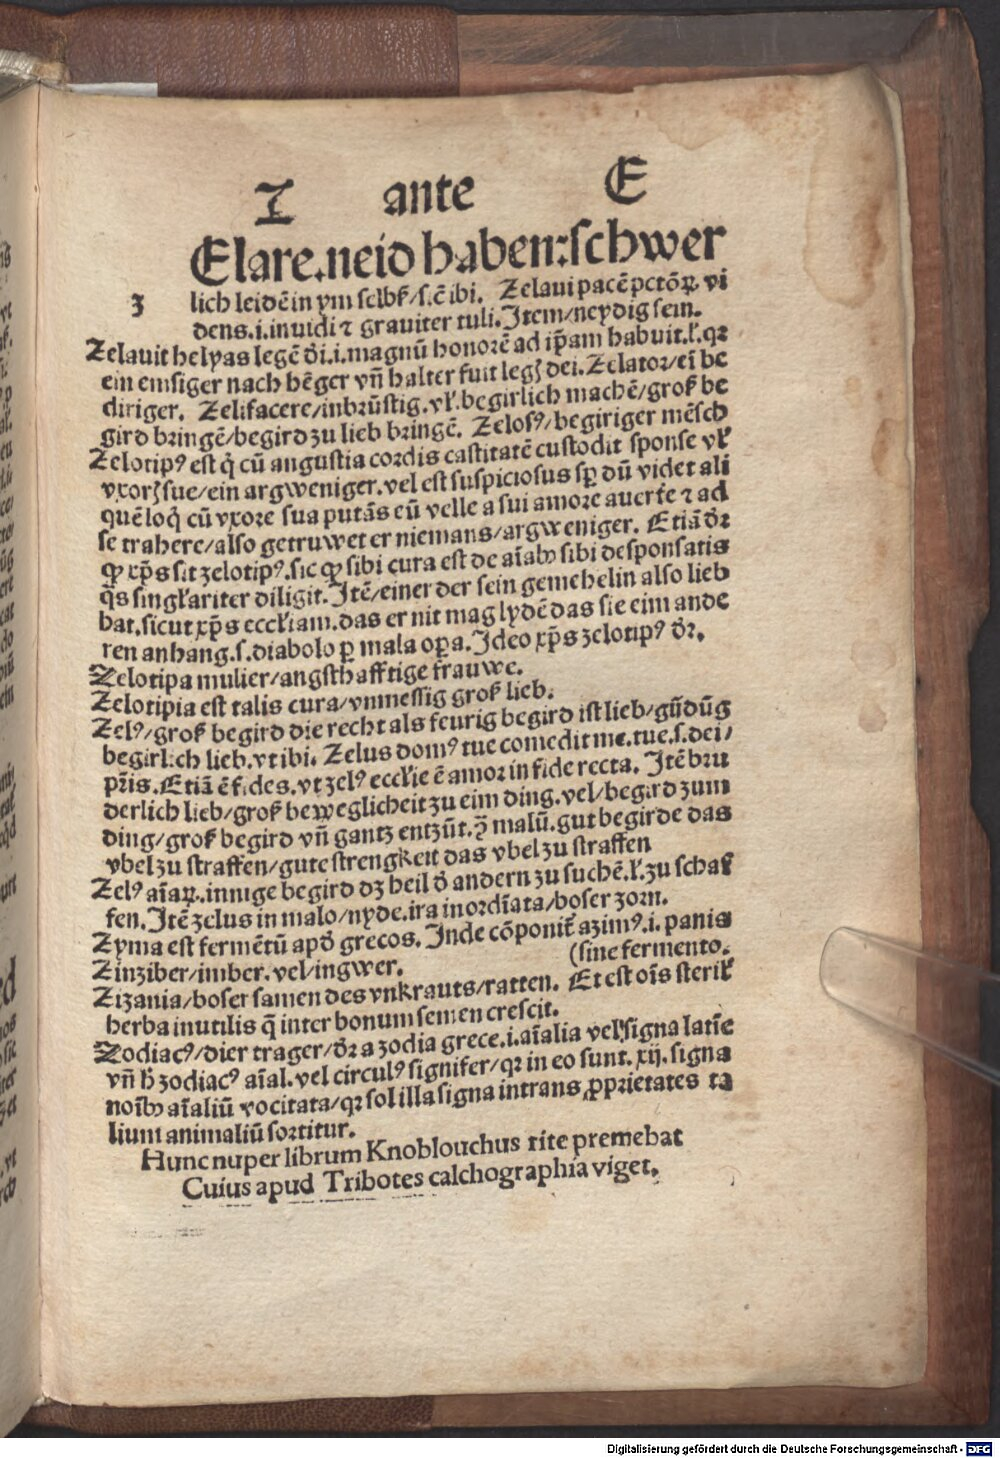 Z ante E
Elare.neid haben:schwer
z lich leidē in ym selbſ/ſ.ē ibi. Zelaui pacē pctōꝝ vi
dens.i.inuidi ⁊ grauiter tuli. Item/neydig sein.
Zelauit helyas legē dn̄i.i.magnū honorē ad ip̄am habuit.ł.qꝛ
ein emsiger nach hēger vn̄ halter fuit legꝭ dei. Zelator/ein be
diriger. Zelifacere/inbrūstig.vł.begirlich machē/groß be
gird bringē/begird zu lieb bringē. Zelosꝰ/begiriger mēsch
Zelotipꝰ est q̇ cū angustia cordis castitatē custodit sponse vł
vxorꝭ sue/ein argweniger.vel est suspiciosus sꝑ dū videt ali
quē loq̇ cū vxore sua putās eū velle a sui amore auerte ⁊ ad
se trahere/also getruwet er niemans/argweniger. Etiā dꝛ
ꝙ xp̄s sit zelotipꝰ.sic ꝙ sibi cura est de aīabꝰ sibi desponsatis
q̄s singłariter diligit. Itē/einer der sein gemehelin also lieb
hat.sicut xp̄s eccłiam.das er nit mag lydē das sie eim ande
ren anhang.s.diabolo ꝑ mala oꝑa. Ideo xp̄s zelotipꝰ dꝛ.
Zelotipa mulier/angsthafftige frauwe.
Zelotipia est talis cura/vnmessig groß lieb.
Zelꝰ/groß begird die recht als feurig begird ist lieb/gūdūg
begirlich lieb.vt ibi. Zelus domꝰ tue comedit me.tue.s.dei/
pr̄is. Etiā ē fides.vt zelꝰ eccłie ē amor in fide recta. Itē bru
derlich lieb/groß beweglicheit zu eim ding.vel/begird zum
ding/groß begird vn̄ gantz entzūt.ꝯ̄ malū.gut begirde das
vbel zu straffen/gute strengkeit das vbel zu straffen
Zelꝰ aīaꝝ.innige begird dz heil d̓ andern zu suchē.ł.zu schaf
fen. Itē zelus in malo/nyde.ira inordīata/boser zorn.
Zyma est fermētū apd̓ grecos. Inde cōponit᷑ azimꝰ.i. panis
(sine fermento.
Zinziber/imber.vel/ingwer.
Zizania/boser samen des vnkrauts/ratten. Et est oīs sterił
herba inutilis q̄ inter bonum semen crescit.
Zodiacꝰ/dier trager/dꝛ a zodia grece.i.aīalia vel signa latīe
vn̄ h̓ zodiacꝰ aīal.vel circulꝰ signifer/qꝛ in eo sunt.xij.signa
noībꝰ aīaliū vocitata/qꝛ sol illa signa intrans ꝓprietates ta
lium animaliū sortitur.
Hunc nuper librum Knoblouchus rite premebat
Cuius apud Tribotes calchographia viget.
Digitalisierung gefördert durch die Deutsche Forschungsgemeinschaft - DFG